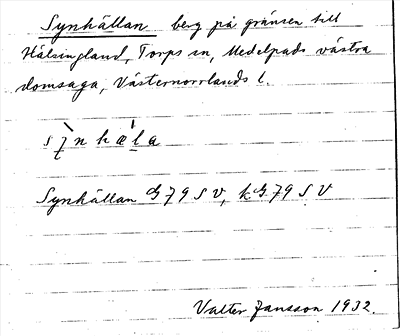 Synhällan berg på gränsen till
Hälsingland, Torps sn, Medelpads västra
domsaga, Västernorrlands l.
Synhällan G 79 S V, kG 79 S V
Valter Jansson 1932.